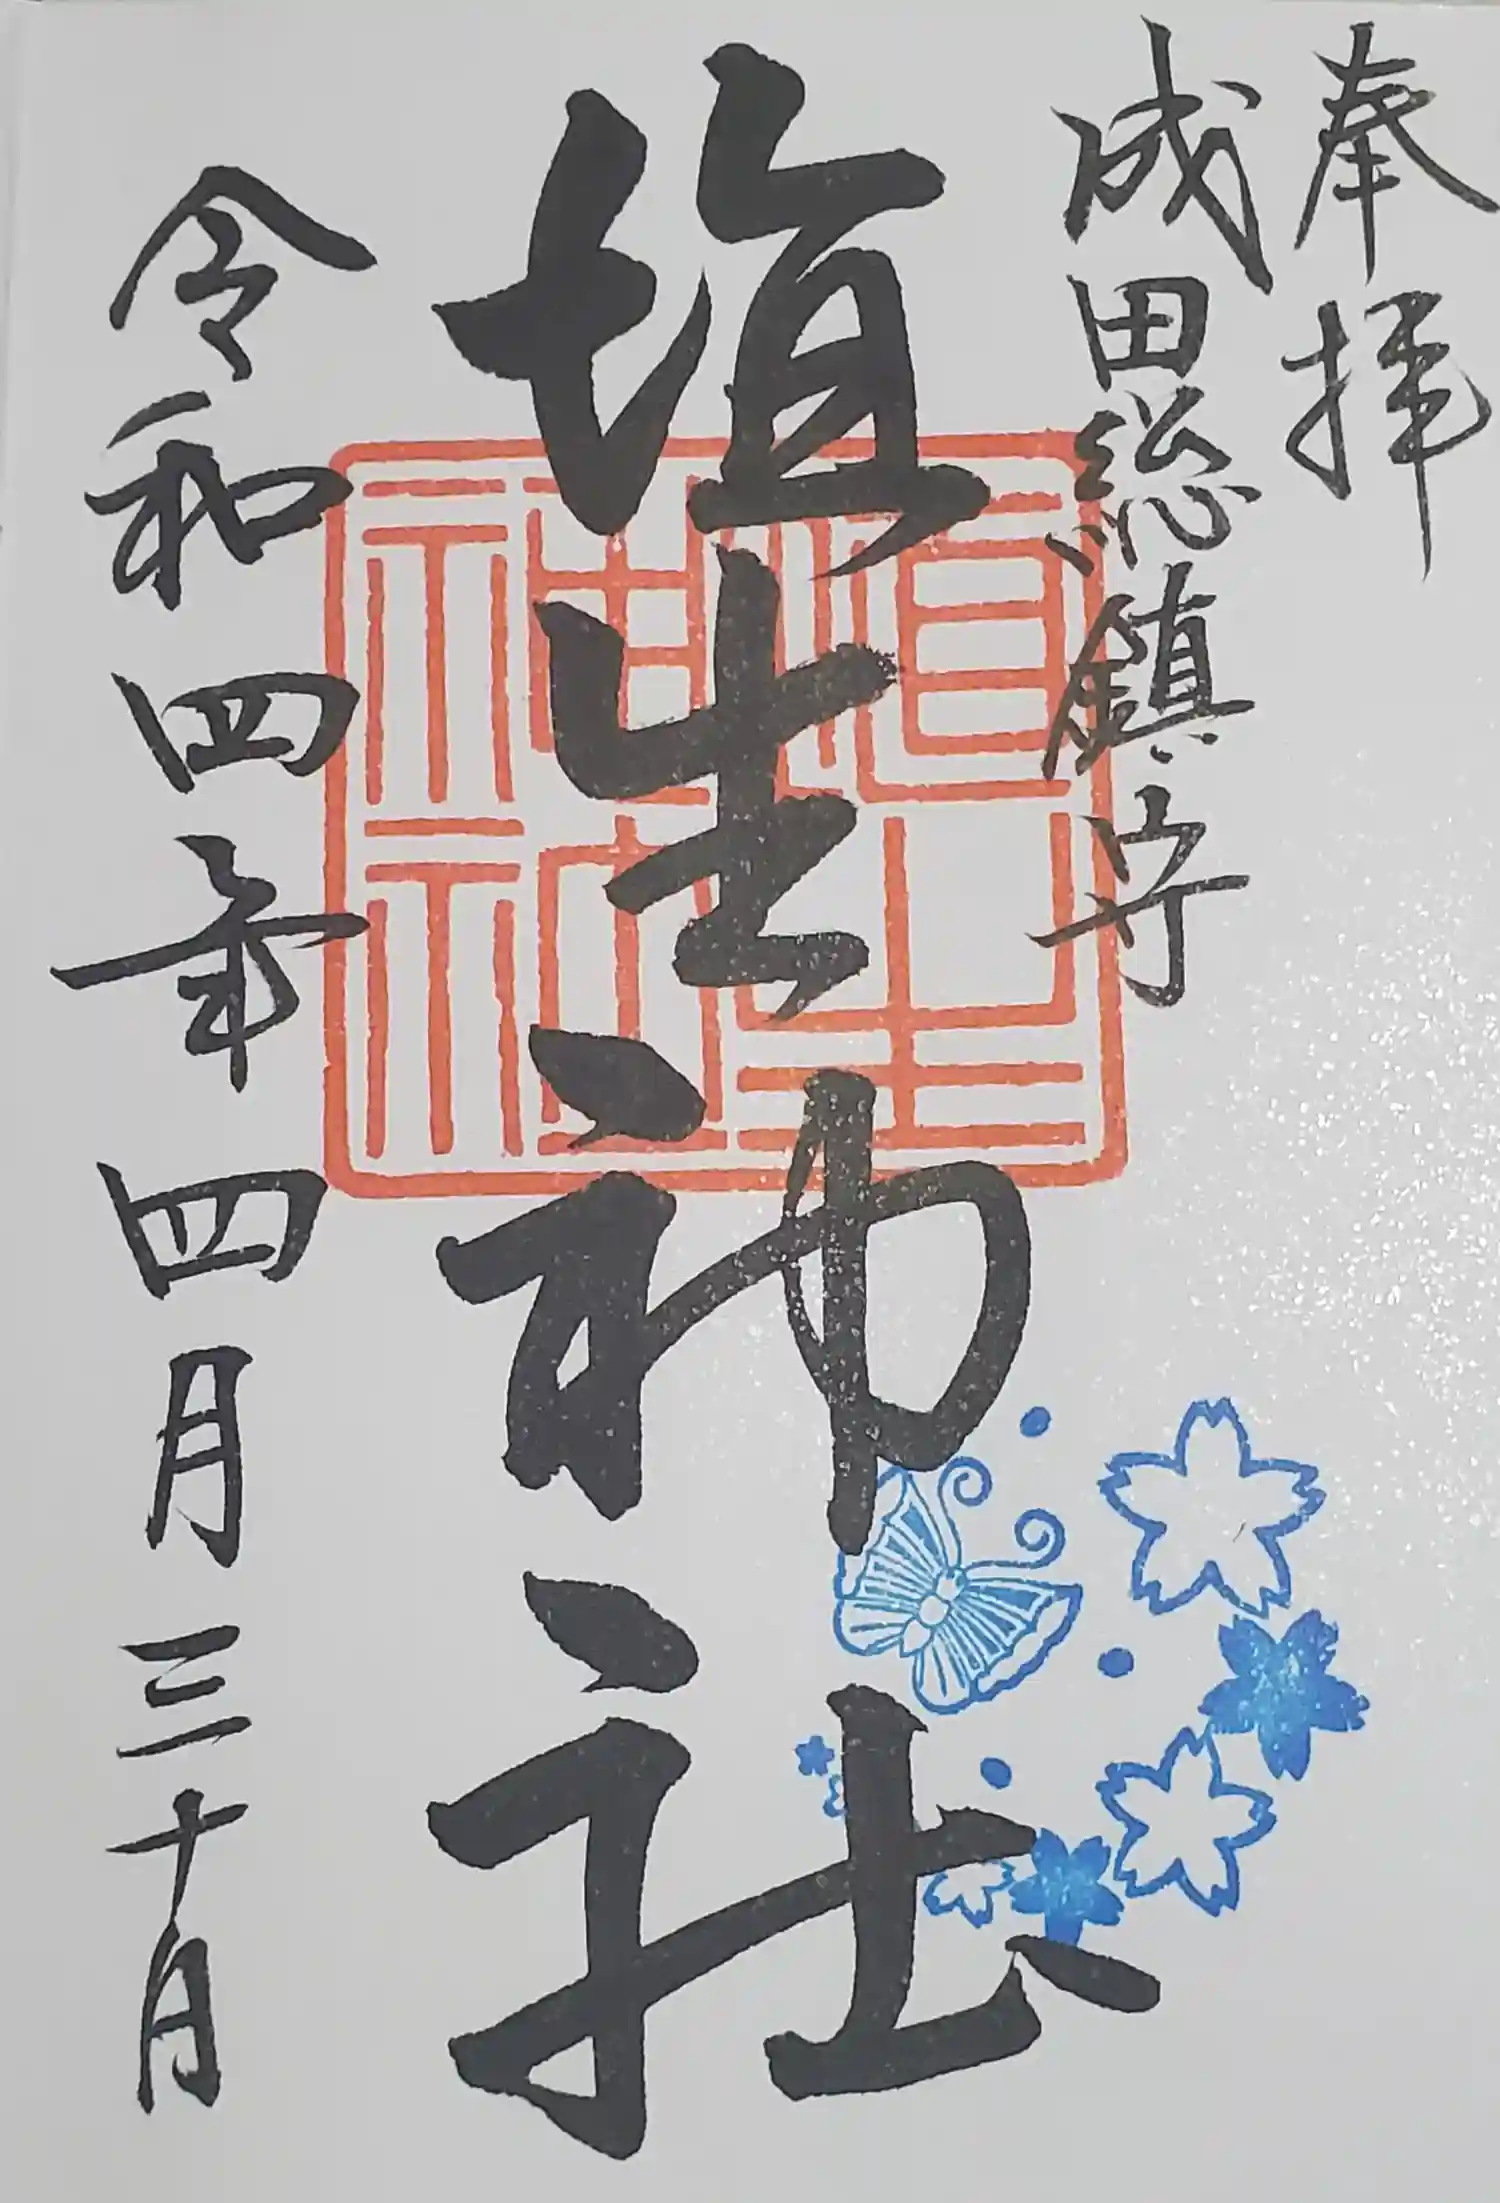 奉拝
成田総鎮守
埴生神社
令和四年四月三十日